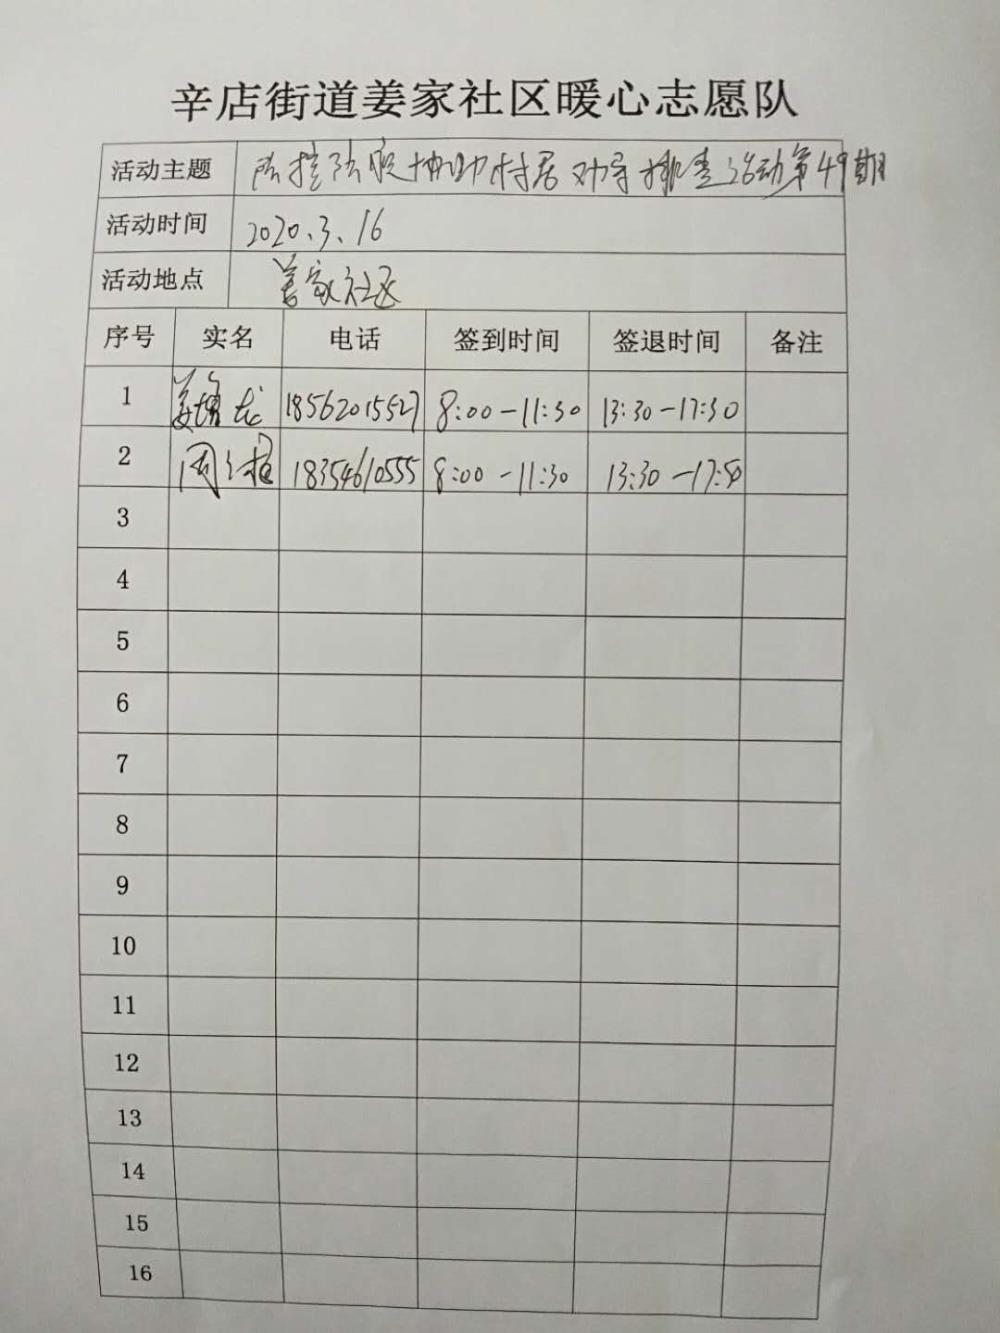 辛店街道姜家社区暖心志愿队
活动主题 防控防疫协助村居劝导排查活动第49期
活动时间 2020.3.16
活动地点 姜家社区
序号 实名 电话 签到时间 签退时间 备注
1 姜 龙 18562015527 8:00-11:30 13:30-17:30
2 周 18354610555 8:00-11:30 13:30-17:30
3
4
5
6
7
8
9
10
11
12
13
14
15
16